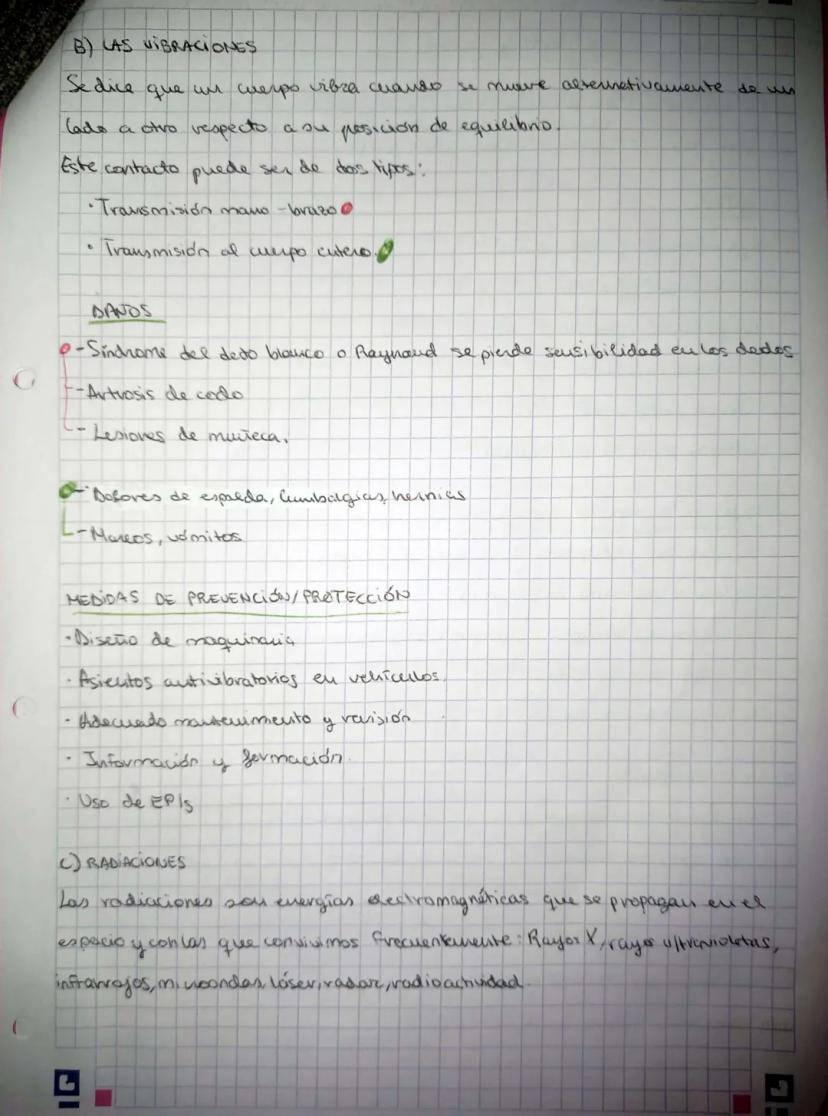 B) LAS VIBRACIONES
Se dice que un cuerpo vibra cuando se mueve alternativamente de un
lado a otro respecto a su posición de equilibrio.
Este contacto puede ser de dos tipos:
· Transmisión mano-brazo
· Transmisión al cuerpo entero.
DAÑOS
- Síndrome del dedo blanco o Raynaud se pierde sensibilidad en los dedos
- Artrosis de codo
- Lesiones de muñeca.
- Dolores de espalda, lumbalgias, hernias
- Mareos, vómitos
MEDIDAS DE PREVENCIÓN/PROTECCIÓN
· Diseño de maquinaria
· Asientos antivibratorios en vehículos.
· Adecuado mantenimiento y revisión
· Información y formación.
· Uso de EPIs
C) RADIACIONES
Las radiaciones son energías electromagnéticas que se propagan en el
espacio y con las que convivimos frecuentemente: Rayos X, rayos ultravioletas,
infrarrojos, microondas, láser, radar, radioactividad.